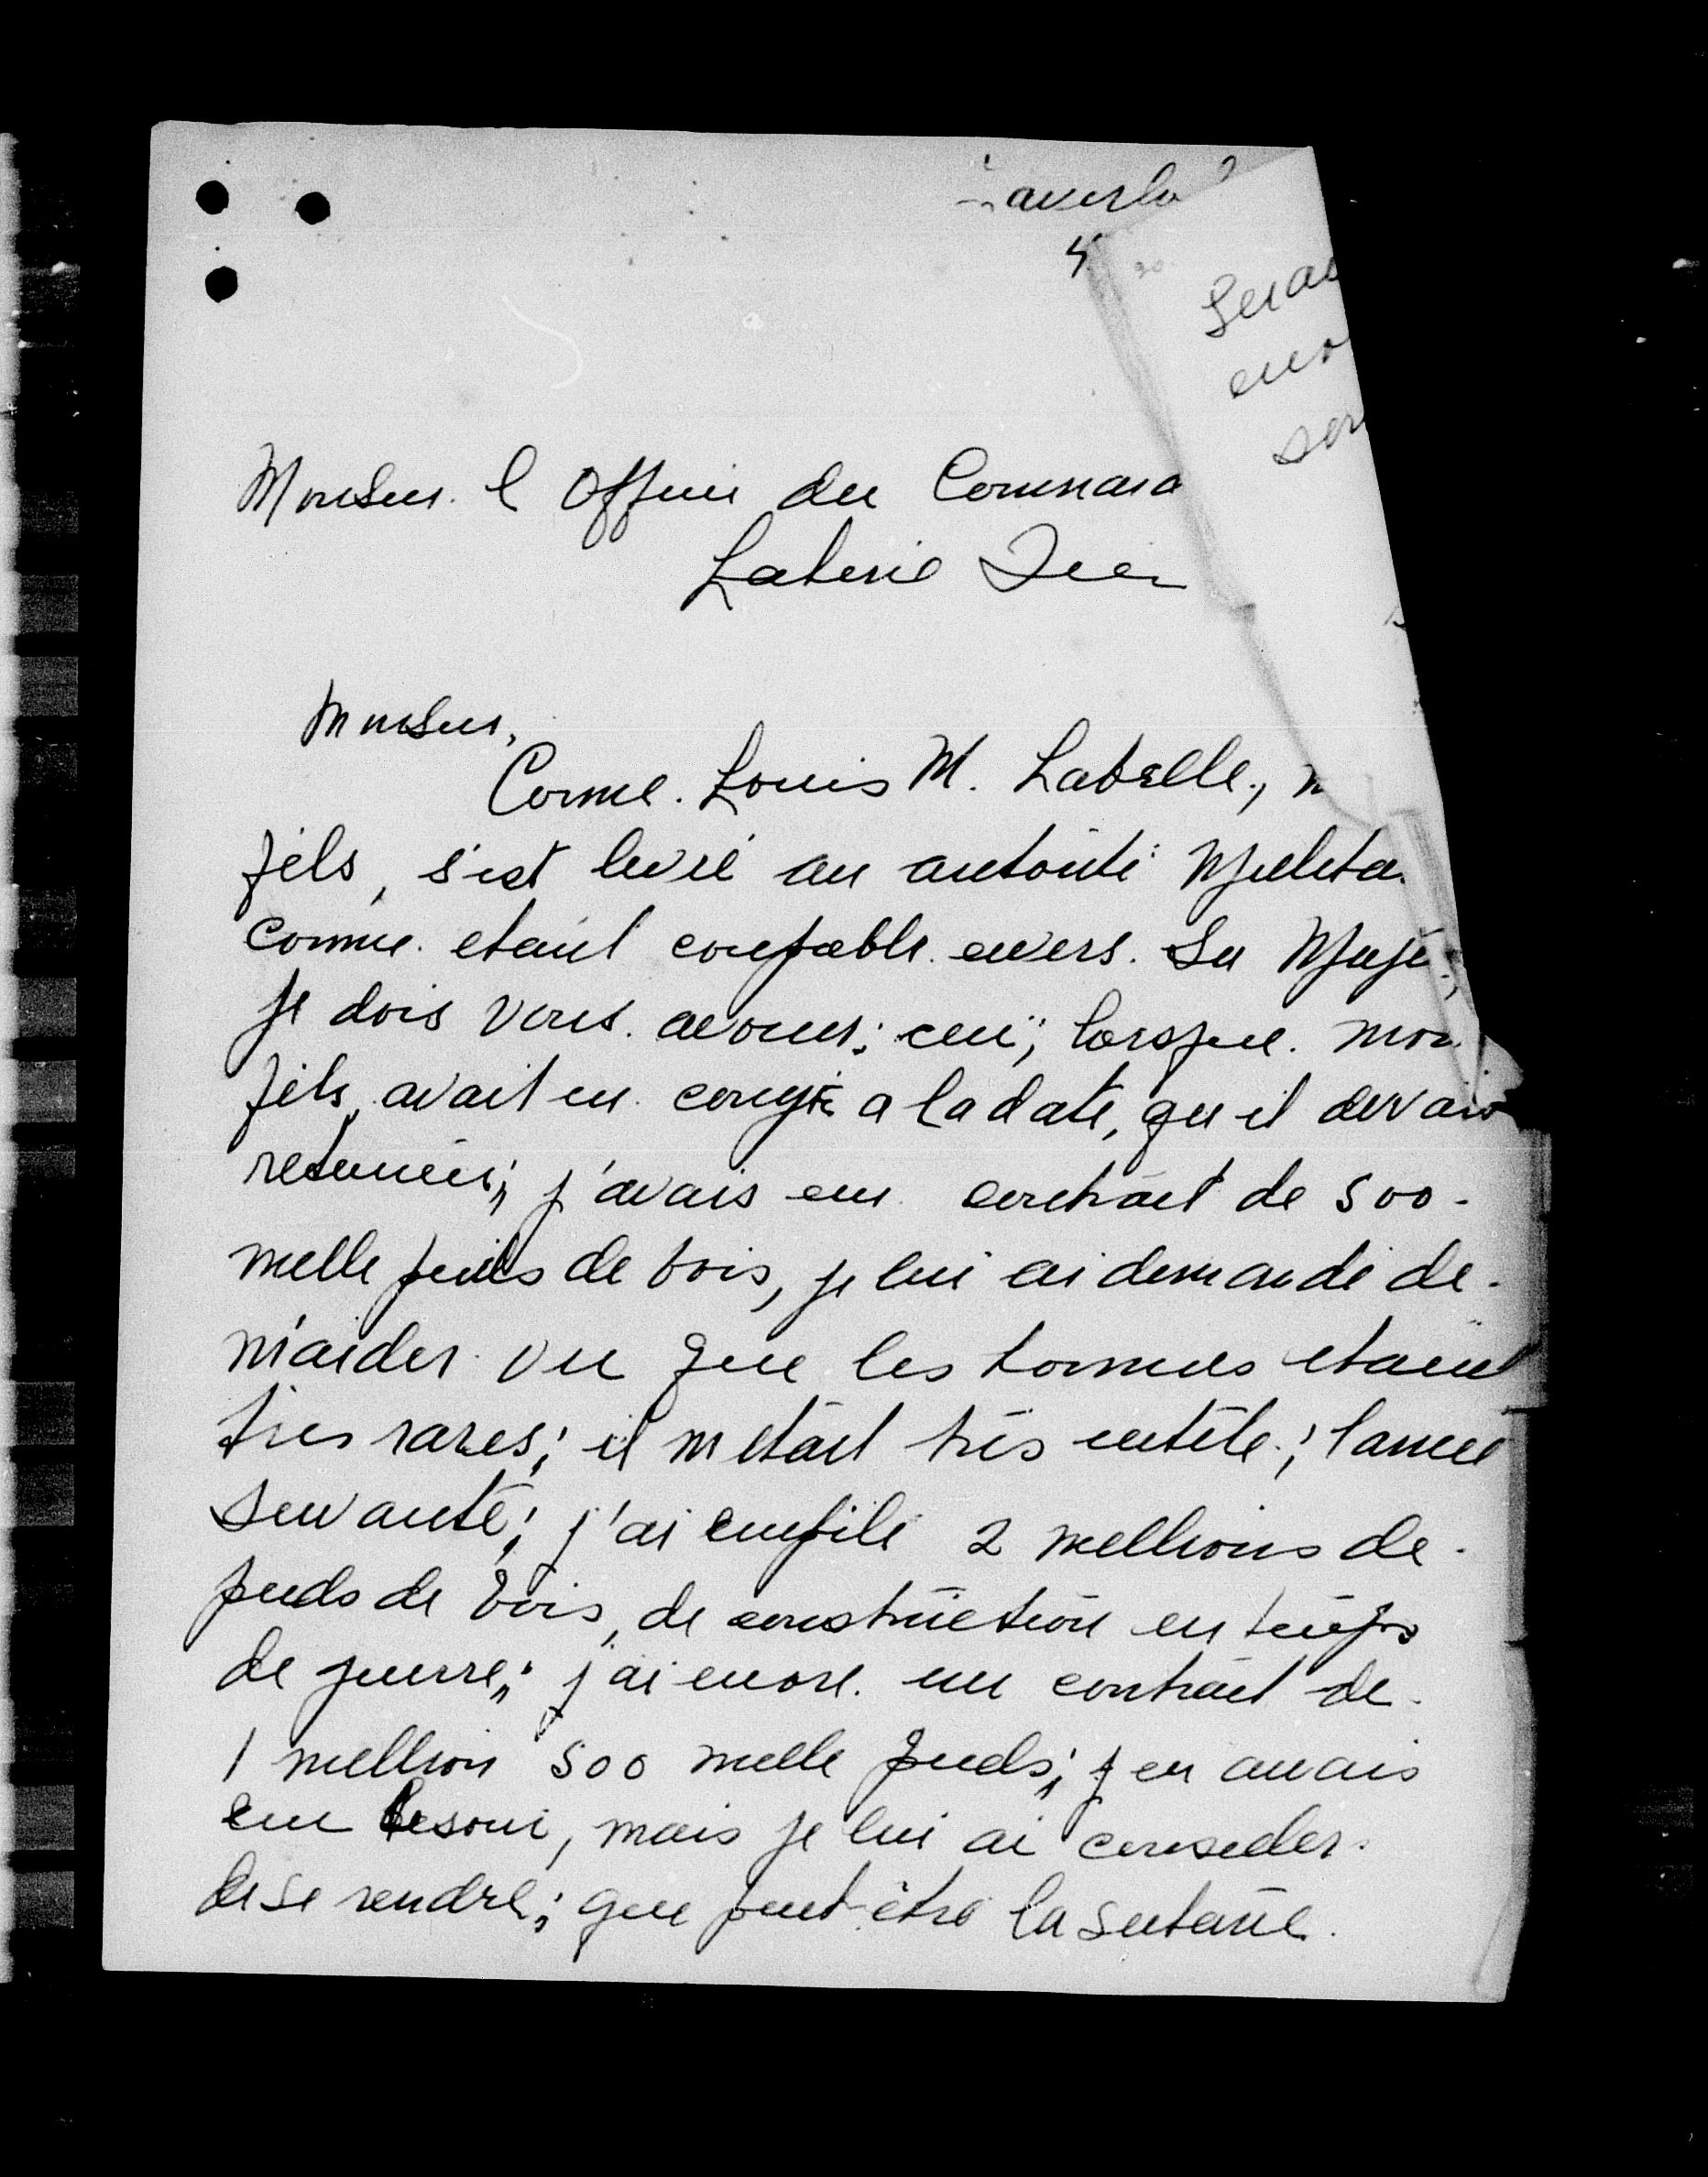 Monsieur l Officier du Command
Laterie
Monsieur,
Comme. Louis M. Labelle, m
fils, s'est livré au autorité Milita
comme etant coupable envers. Sa Majé
je dois vous avouer; lorsque mon
fils, avait eu congé a la date, qu il devais
retourner; j'avais un contrat de 500
mille pieds de bois, je lui ai demandé de
m'aider vu que les hommes etaient
tres rares; il m était très utile; lannee
suivante; j'ai empilé 2 millions de
pieds de bois, de construction en temps
de guerre; j'ai encore un contrat de
1 million 500 mille pieds; j en aurais
eu besoin, mais je lui ai conseiller
de se rendre; que peut-être la